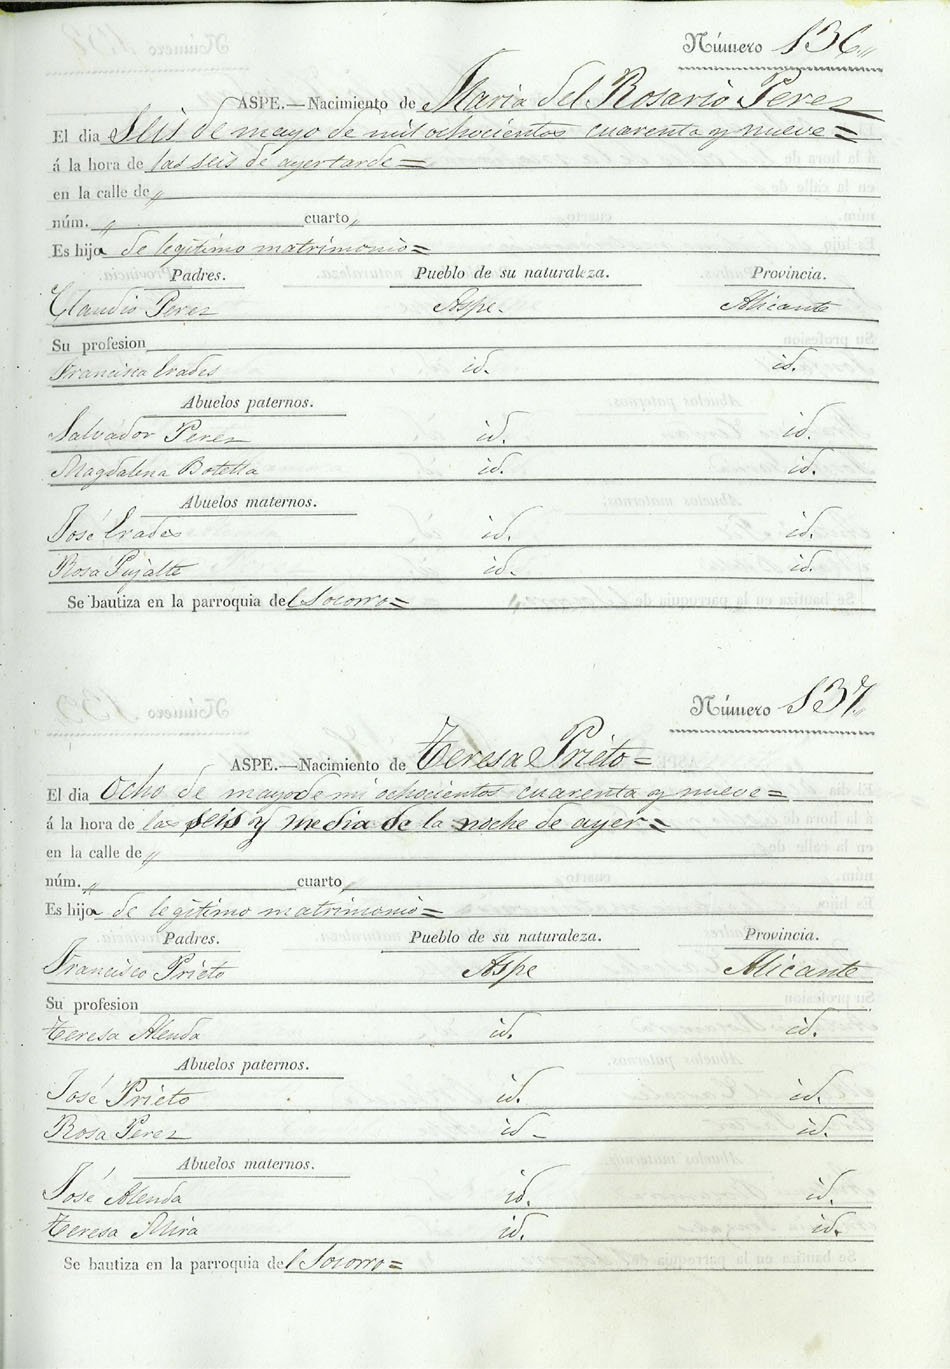 Número 136,,
ASPE.—Nacimiento de Maria del Rosario Perez
El dia Seis de mayo de mil ochocientos cuarenta y nueve=
á la hora de las seis de ayer tarde=
en la calle de ,,
núm. ,, cuarto ,,
Es hija de legitimo matrimonio=
Padres. Pueblo de su naturaleza. Provincia.
Claudio Perez Aspe. Alicante
Su profesion
Francisca Erades id. id.
Abuelos paternos.
Salvador Perez id. id.
Magdalena Botella id. id.
Abuelos maternos.
José Erades id. id.
Rosa Pujalte id. id.
Se bautiza en la parroquia del Socorro=
Número 137,,
ASPE.—Nacimiento de Teresa Prieto=
El dia Ocho de mayo de mi ochocientos cuarenta y nueve=
á la hora de las seis y media de la noche de ayer=
en la calle de ,,
núm. ,, cuarto ,,
Es hija de legitimo matrimonio=
Padres. Pueblo de su naturaleza. Provincia.
Francisco Prieto Aspe Alicante
Su profesion
Teresa Alenda id. id.
Abuelos paternos.
José Prieto id. id.
Rosa Perez id. id.
Abuelos maternos.
José Alenda id. id.
Teresa Mira id. id.
Se bautiza en la parroquia del Socorro=